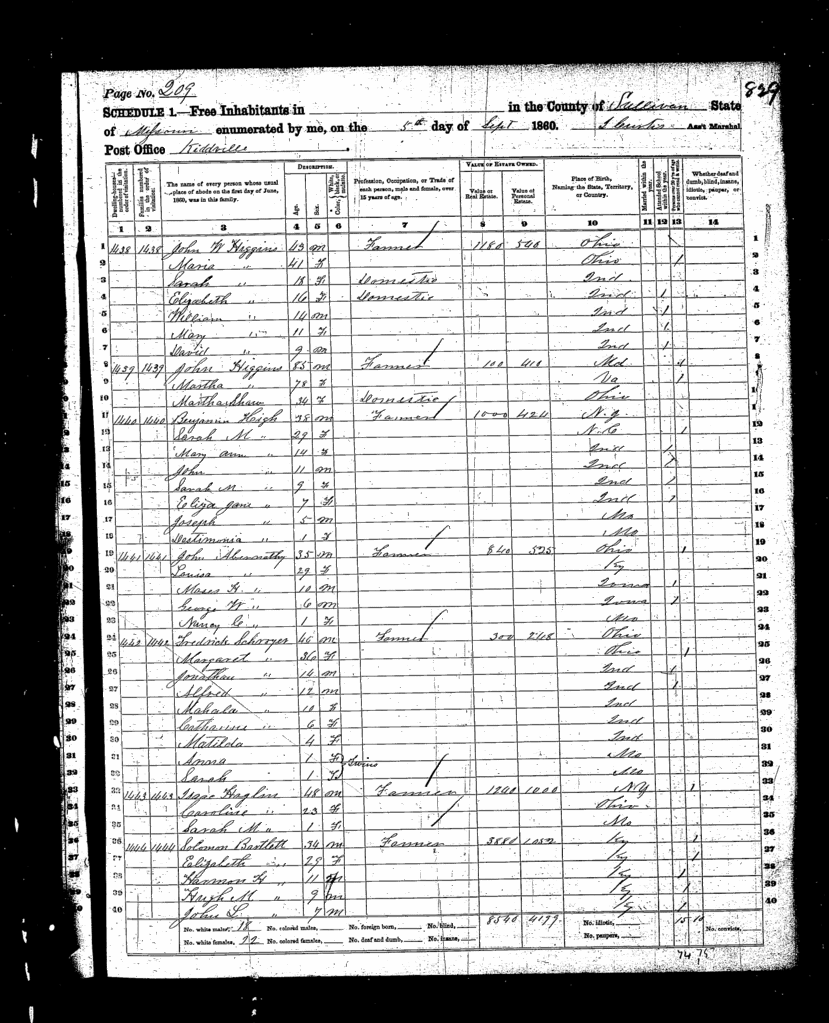 Page No. 209
829
SCHEDULE 1.—Free Inhabitants in in the County of Sullivan State
of Missouri enumerated by me, on the 5th day of Sept 1860. Ass't Marshal
Post Office Kiddville
DESCRIPTION. VALUE OF ESTATE OWNED.
Dwelling-houses—numbered in the order of visitation. Families numbered in the order of visitation. The name of every person whose usual place of abode on the first day of June, 1860, was in this family. Age. Sex. Color, Profession, Occupation, or Trade of each person, male and female, over 15 years of age. Value of Real Estate. Value of Personal Estate. Place of Birth, Naming the State, Territory, or Country. Married within the year. Attended School within the year. Whether deaf and dumb, blind, insane, idiotic, pauper, or convict.
1 2 3 4 5 6 7 8 9 10 11 12 13 14
1 1438 1438 John W Higgins 43 m Farmer 1180 540 Ohio 1
2 Maria " 41 F Ohio 2
3 Sarah " 18 F Domestic Ind 3
4 Elizabeth " 16 F Domestic Ind 4
5 William " 14 m Ind 5
6 Mary " 11 F Ind 6
7 David " 9 m Ind 7
8 1439 1439 John Higgins 85 m Farmer 100 410 Md 8
9 Martha " 78 F Va
10 Martha Shaw 34 F Domestic Ohio
11 1440 1440 Benjamin High 38 m Farmer 1000 424 N.J.
12 Sarah M " 29 F N.C 12
13 Mary Ann " 14 F Ind 13
14 John " 11 m Ind 14
15 Sarah M " 9 F Ind 15
16 Eliza Jane " 7 F Ind 16
17 Joseph " 5 m Mo 17
18 " 1 F Mo 18
19 1441 1441 John Abernathy 35 m Farmer 840 525 Ohio 19
20 Louisa " 29 F Ky 20
21 Moses H. " 10 m Iowa 21
22 George W " 6 m Iowa 22
23 Nancy C " 1 F Mo 23
24 1442 1442 Fredrick Schroyer 46 m Farmer 300 Ohio 24
25 Margaret " 36 F Ohio 25
26 Jonathan " 14 m Ind 26
27 Alfred " 12 m Ind 27
28 Mahala " 10 F Ind 28
29 Catharine " 6 F Ind 29
30 Matilda 4 F Ind 30
31 Anna 1 F Twins Mo 31
32 Sarah 1 F Mo 32
33 1443 1443 Isaac 48 m Farmer 1240 1000 NY 33
34 Caroline " 23 F Ohio 34
35 Sarah M " 1 F Mo 35
36 1444 1444 Solomon Bartlett 34 m Farmer 3880 1052 Ky 36
37 Elizabeth " 28 F Ky 37
38 Harmon H " 11 m Ky 38
39 Hugh M " 9 m Ky 39
40 John L " 7 m Ky 40
No. white males, 18 No. colored males, No. foreign born, No. blind, 8540 4199 No. idiotic, 15 10 No. convicts,
No. white females, 22 No. colored females, No. deaf and dumb, No. insane, No. paupers,